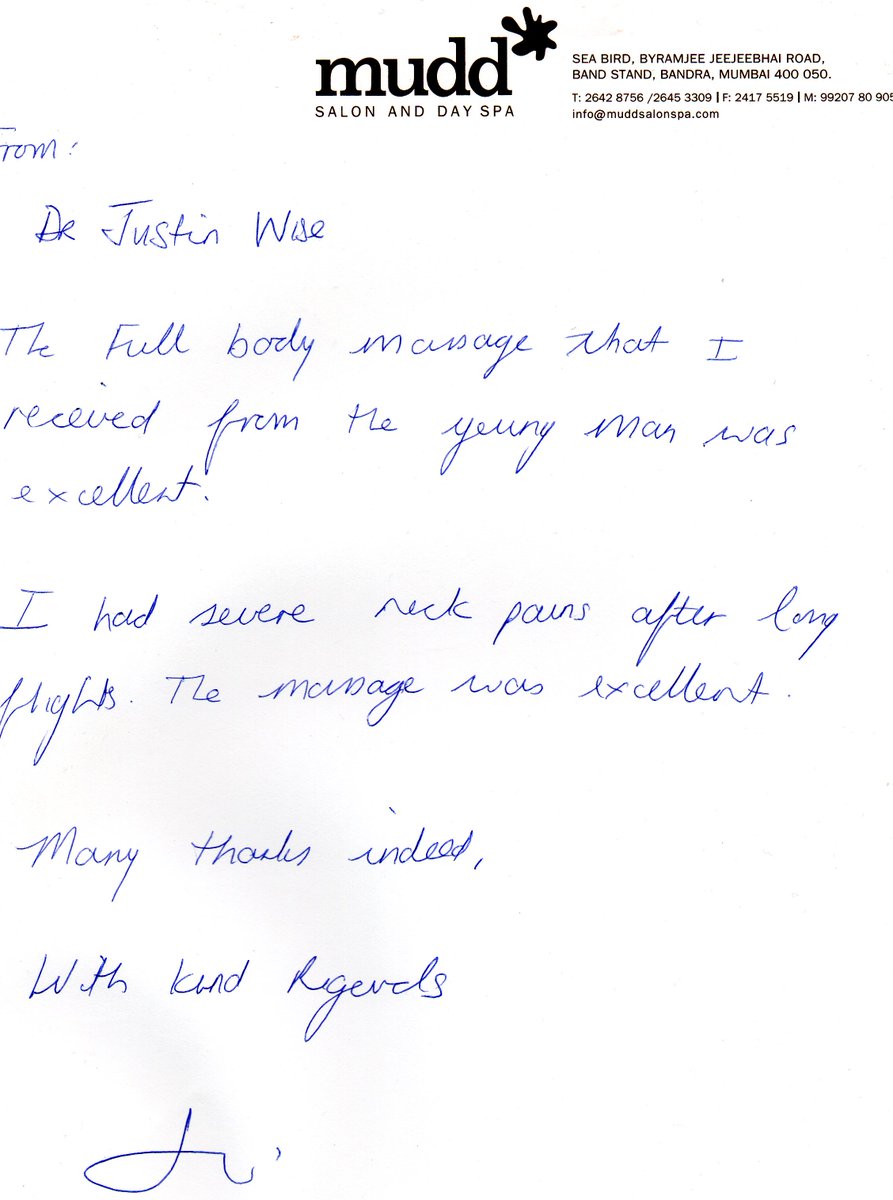 mudd
SALON AND DAY SPA
SEA BIRD, BYRAMJEE JEEJEEBHAI ROAD,
BAND STAND, BANDRA, MUMBAI 400 050.
T: 2642 8756 /2645 3309 | F: 2417 5519 | M: 99207 80 905
info@muddsalonspa.com
From:
Dr Justin Wise
The Full body massage that I
received from the young man was
excellent.
I had severe neck pains after long
flights. The massage was excellent.
Many thanks indeed,
With kind Regards